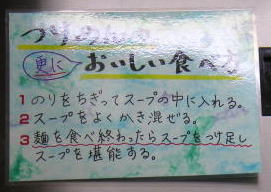 つけめんの
更に おいしい食べ方
1 のりをちぎってスープの中に入れる。
2 スープをよくかき混ぜる。
3 麺を食べ終わったらスープをつけ足し
スープを堪能する。